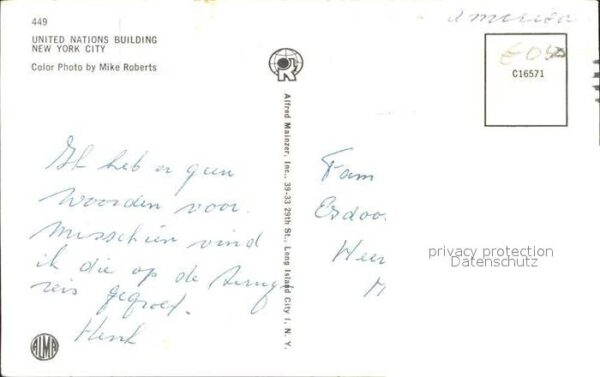 449
UNITED NATIONS BUILDING
NEW YORK CITY
Color Photo by Mike Roberts
America
C16571
R
Alfred Mainzer, Inc., 39-33 29th St., Long Island City I, N. Y.
Ik heb er geen
woorden voor.
Misschien vind
ik die op de terug
reis
Henk
Fam
Esdoo
Heer
privacy protection
Datenschutz
ALMA